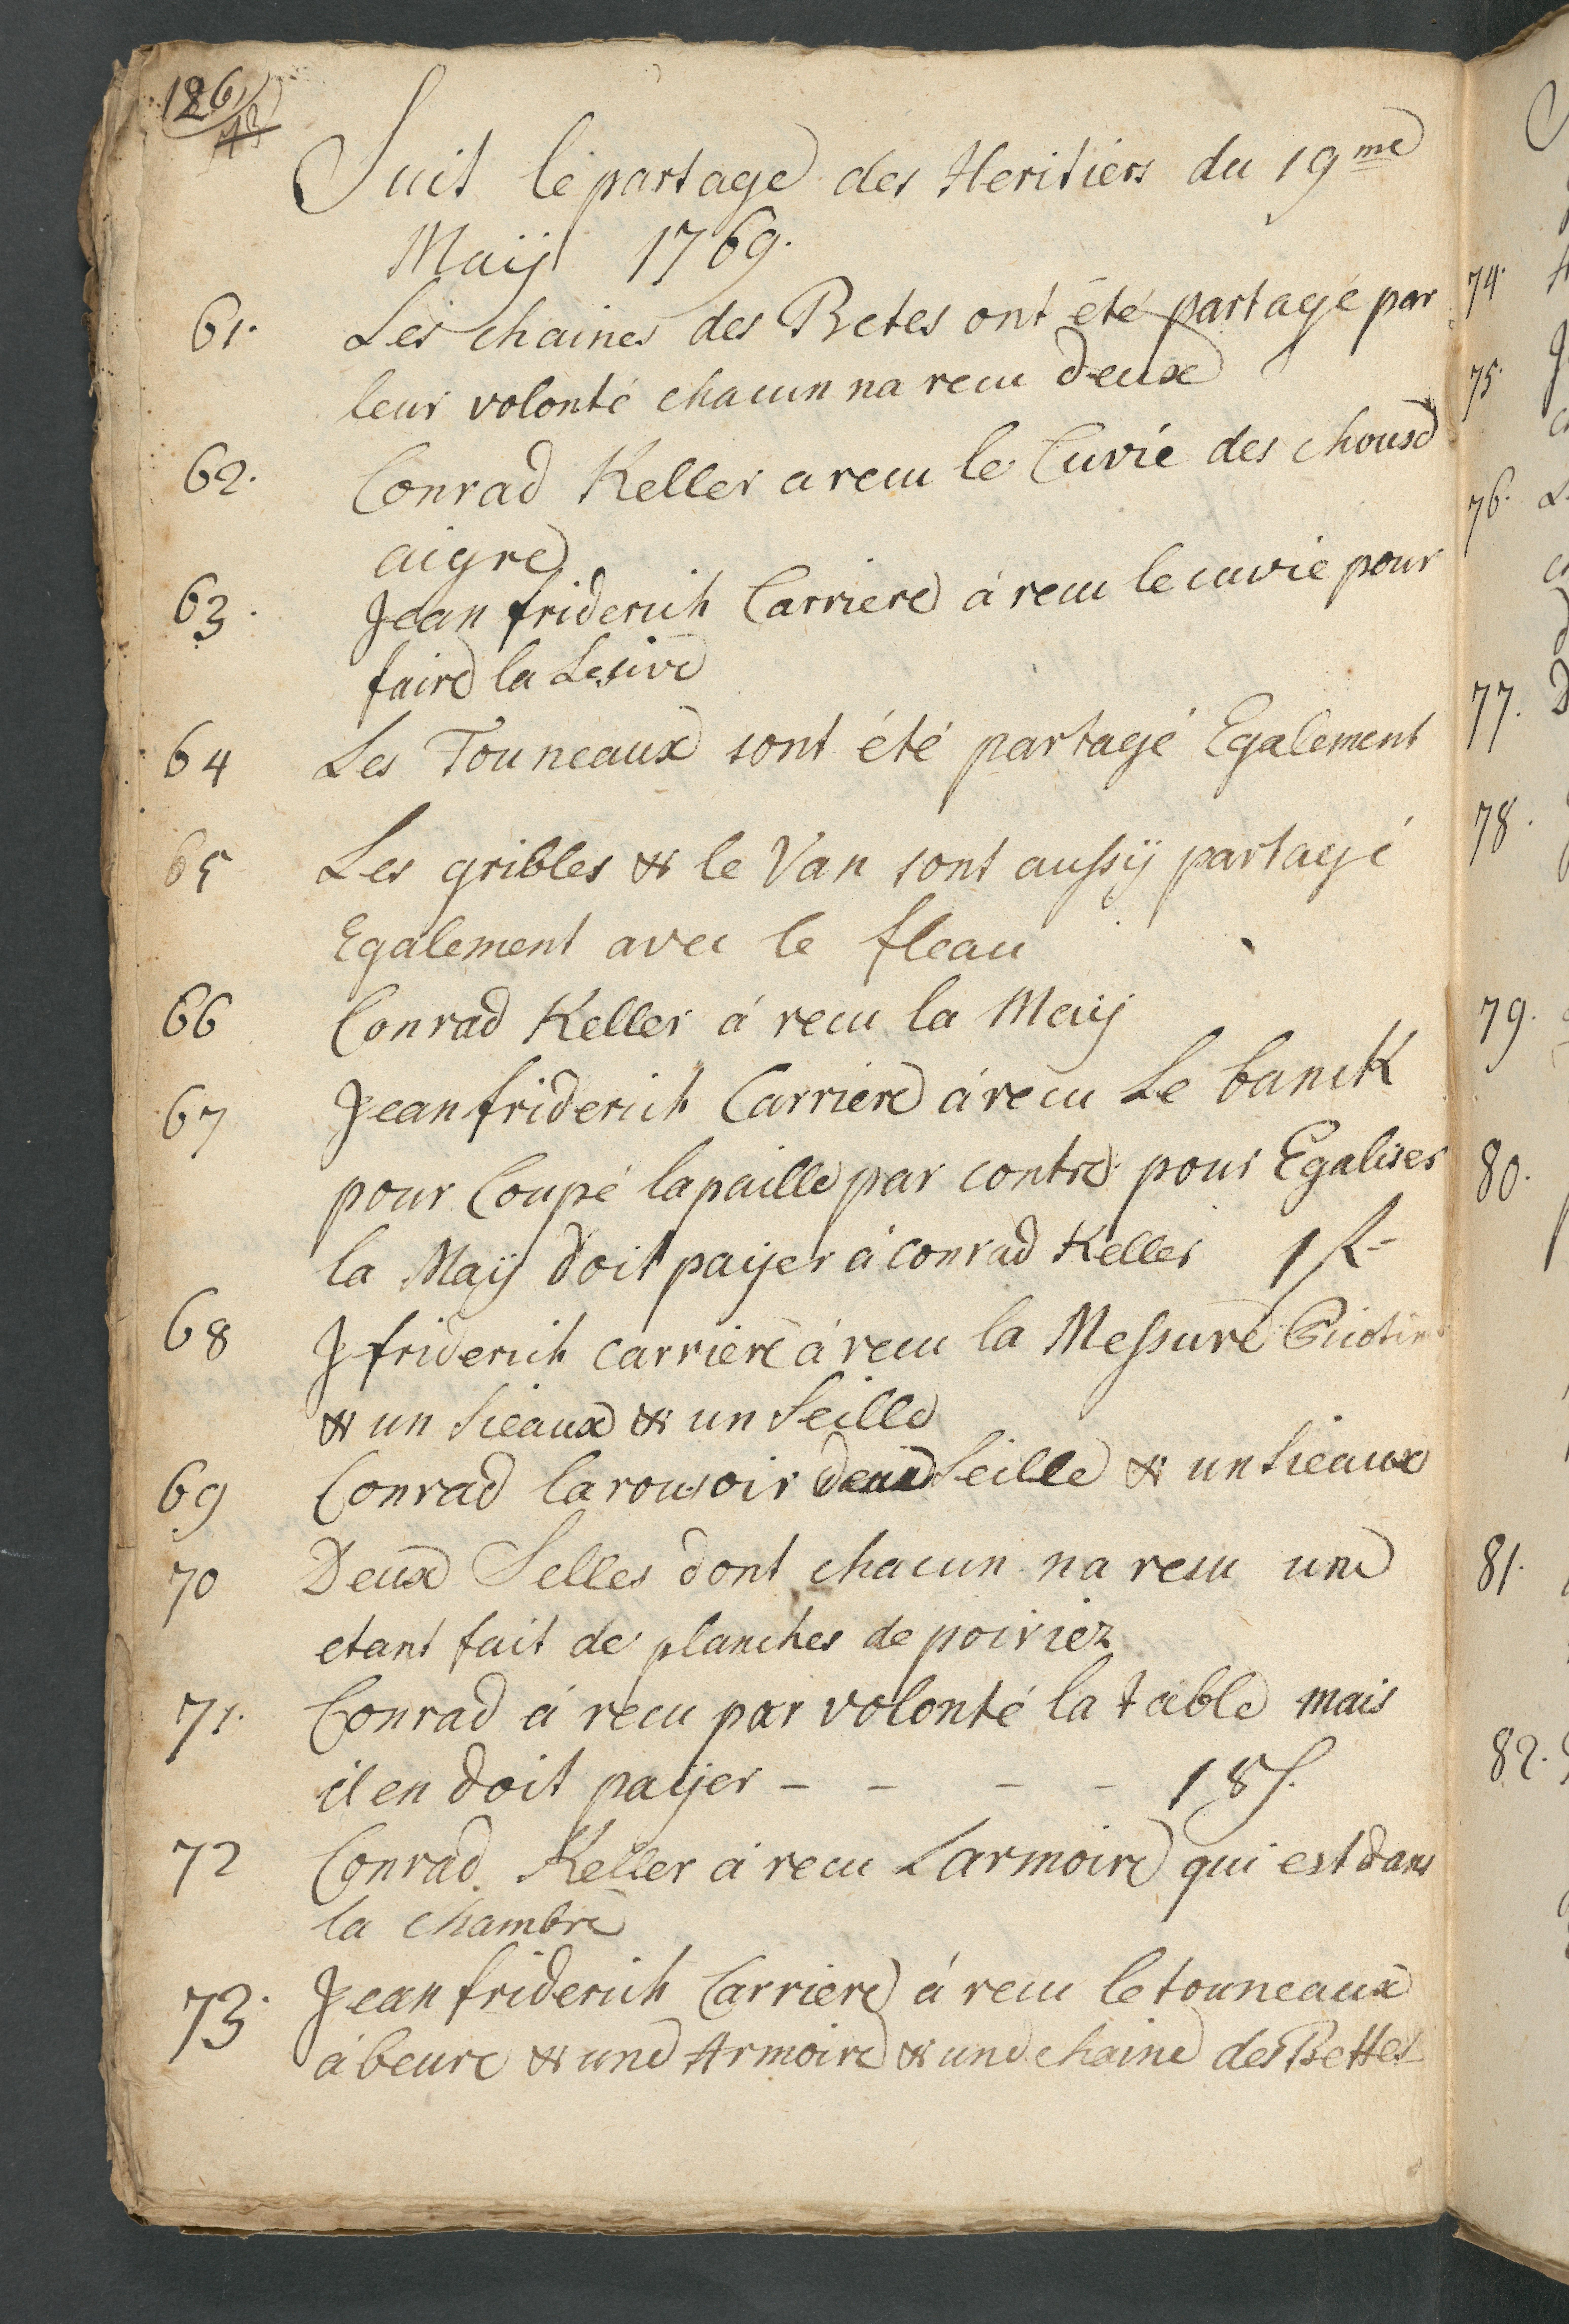 126
Suit le partage des Heritiers du 19me
Maÿ 1769.
61. Les chaines des Betes ont été partagé par
leur volonté chacun na recu deux
62. Conrad Keller a recu le Cuvié des choux
aigre
63. Jean friderich Carriere á recu le cuvie pour
faire la Lesive
64 Les Tonneaux sont été partagé Egalement
65 Les gribles & le Van sont aussÿ partagé
Egalement avec le fleau
66 Conrad Keller á recu la Maÿ
67 Jean friderich Carriere á recu Le banck
pour Coupé la paille par contre pour Egaliser
la Maÿ doit paÿer á Conrad Keller 1
68 J friderich carriere á recu la Messure
& un Sieaux & un Seille
69 Conrad larousoir deux Seille & un Sieaux
70 Deux Selles dont chacun na resu une
etant fait de planches de poiriez
71. Conrad á recu par volonté la table mais
il en doit paÿer - - - - 18 s.
72 Conrad Keller á recu Larmoire qui est dans
la chambre
73. Jean friderich Carriere á recu le tonneaux
á beure & une Armoire & une chaine des Bettes
74.
75.
76.
77.
78.
79.
80.
81.
82.